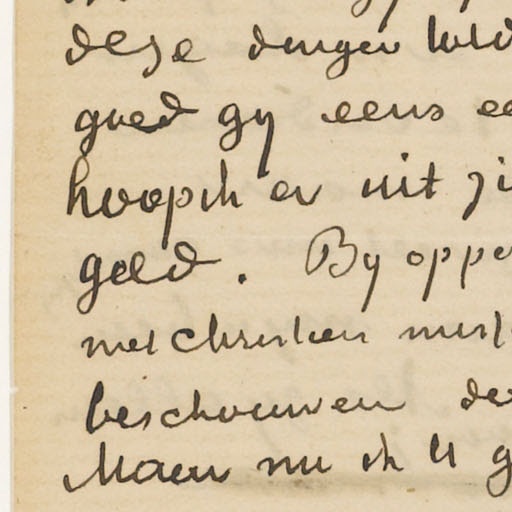 deze dingen
goed gy eens
hoop ik er uit
geld. By opper
met Christien
beschouwen de
Maar nu ik U g